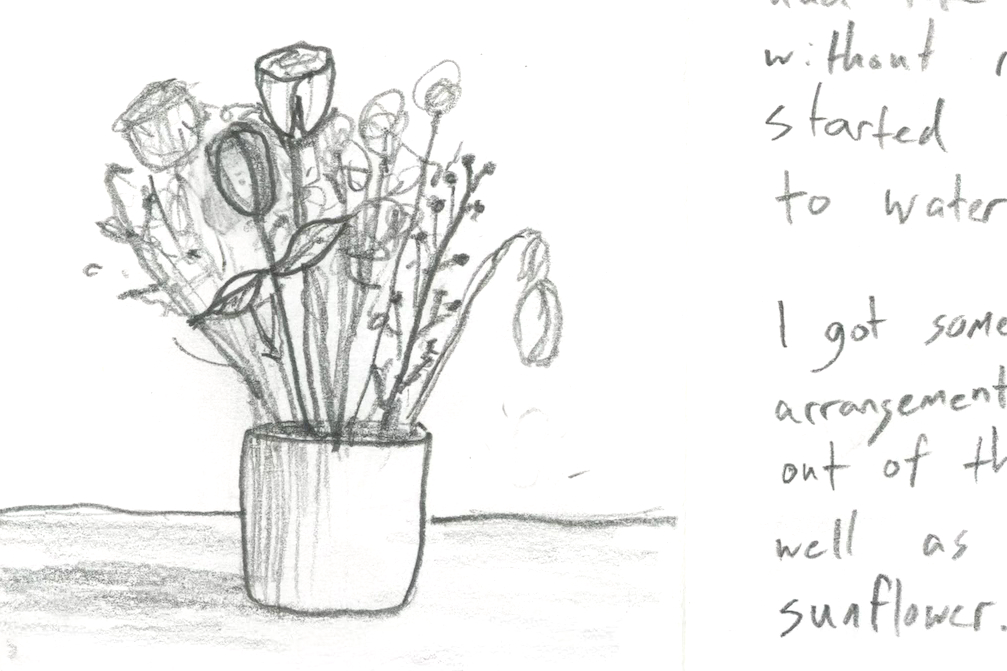 without
started
to water
I got some
arrangement
out of th
well as
sunflower.